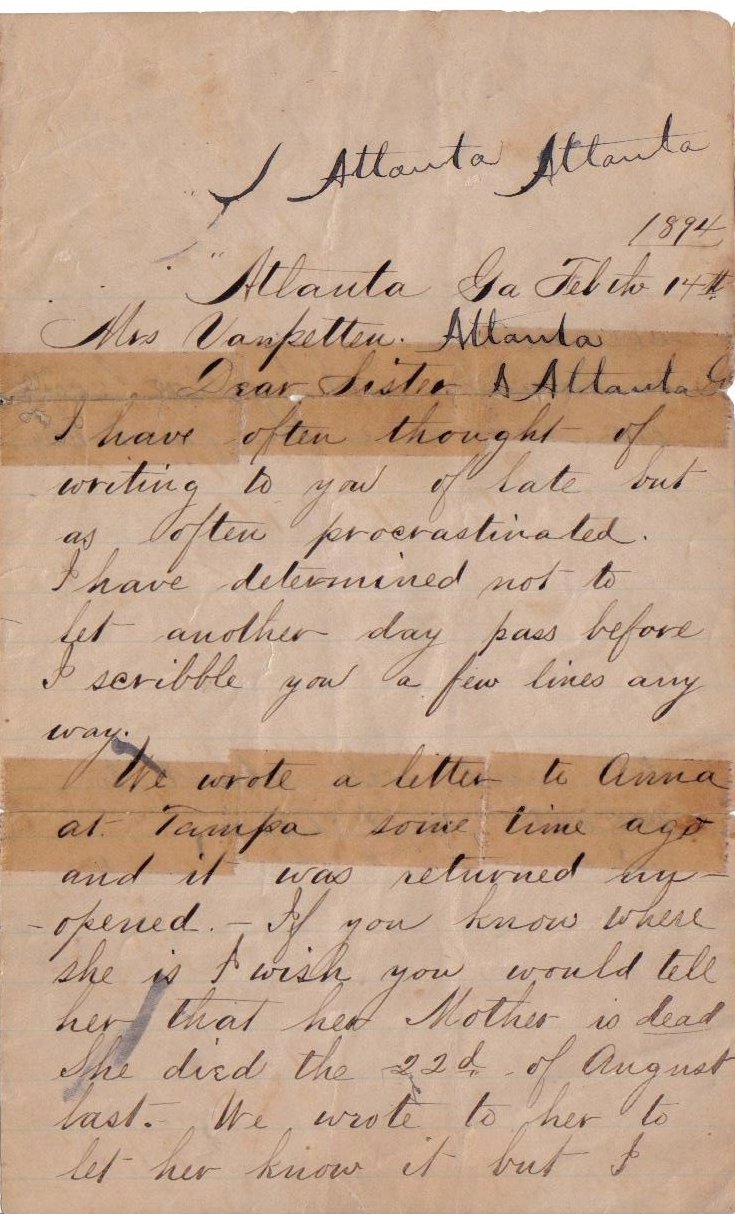 Atlanta Atlanta
1894
Atlanta Ga Feb the 14th
Mrs Vanpetten. Atlanta
Dear Sister A Atlanta Ga
I have often thought of
writing to you of late but
as often procrastinated.
I have determined not to
let another day pass before
I scribble you a few lines any
way.
We wrote a letter to Anna
at Tampa some time ago
and it was returned un-
-opened. - If you know where
she is I wish you would tell
her that her Mother is dead
She died the 22d. of August
last. - We wrote to her to
let her know it but I